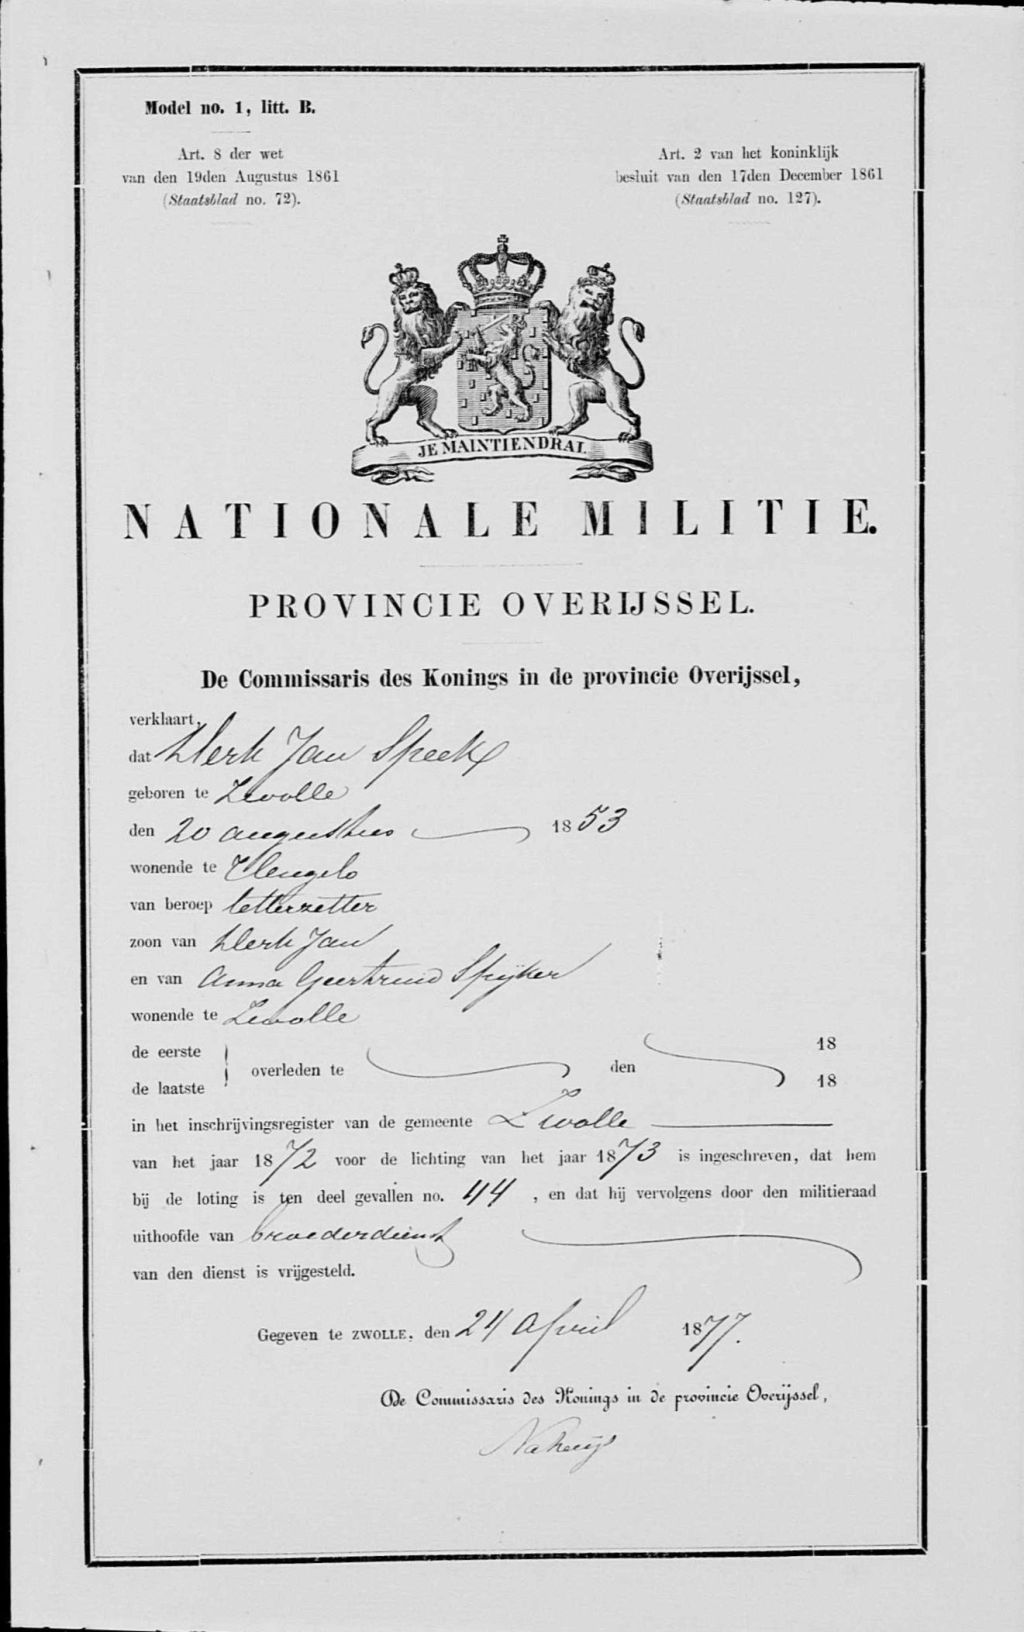 Model no. 1, litt. B.
Art. 8 der wet
van den 19den Augustus 1861
(Staatsblad no. 72).
Art. 2 van het koninklijk
besluit van den 17den December 1861
(Staatsblad no. 127).
JE MAINTIENDRAI
NATIONALE MILITIE.
PROVINCIE OVERIJSSEL.
De Commissaris des Konings in de provincie Overijssel,
verklaart,
dat Derk Jan Speek
geboren te Zwolle
den 20 augustus 1853
wonende te Hengelo
van beroep letterzetter
zoon van Derk Jan
en van Anna Geertruid Spijker
wonende te Zwolle
de eerste 18
overleden te den
de laatste 18
in het inschrijvingsregister van de gemeente Zwolle
van het jaar 1872 voor de lichting van het jaar 1873 is ingeschreven, dat hem
bij de loting is ten deel gevallen no. 44, en dat hij vervolgens door den militieraad
uithoofde van broederdienst
van den dienst is vrijgesteld.
Gegeven te ZWOLLE, den 24 April 1877.
De Commissaris des Konings in de provincie Overijssel,